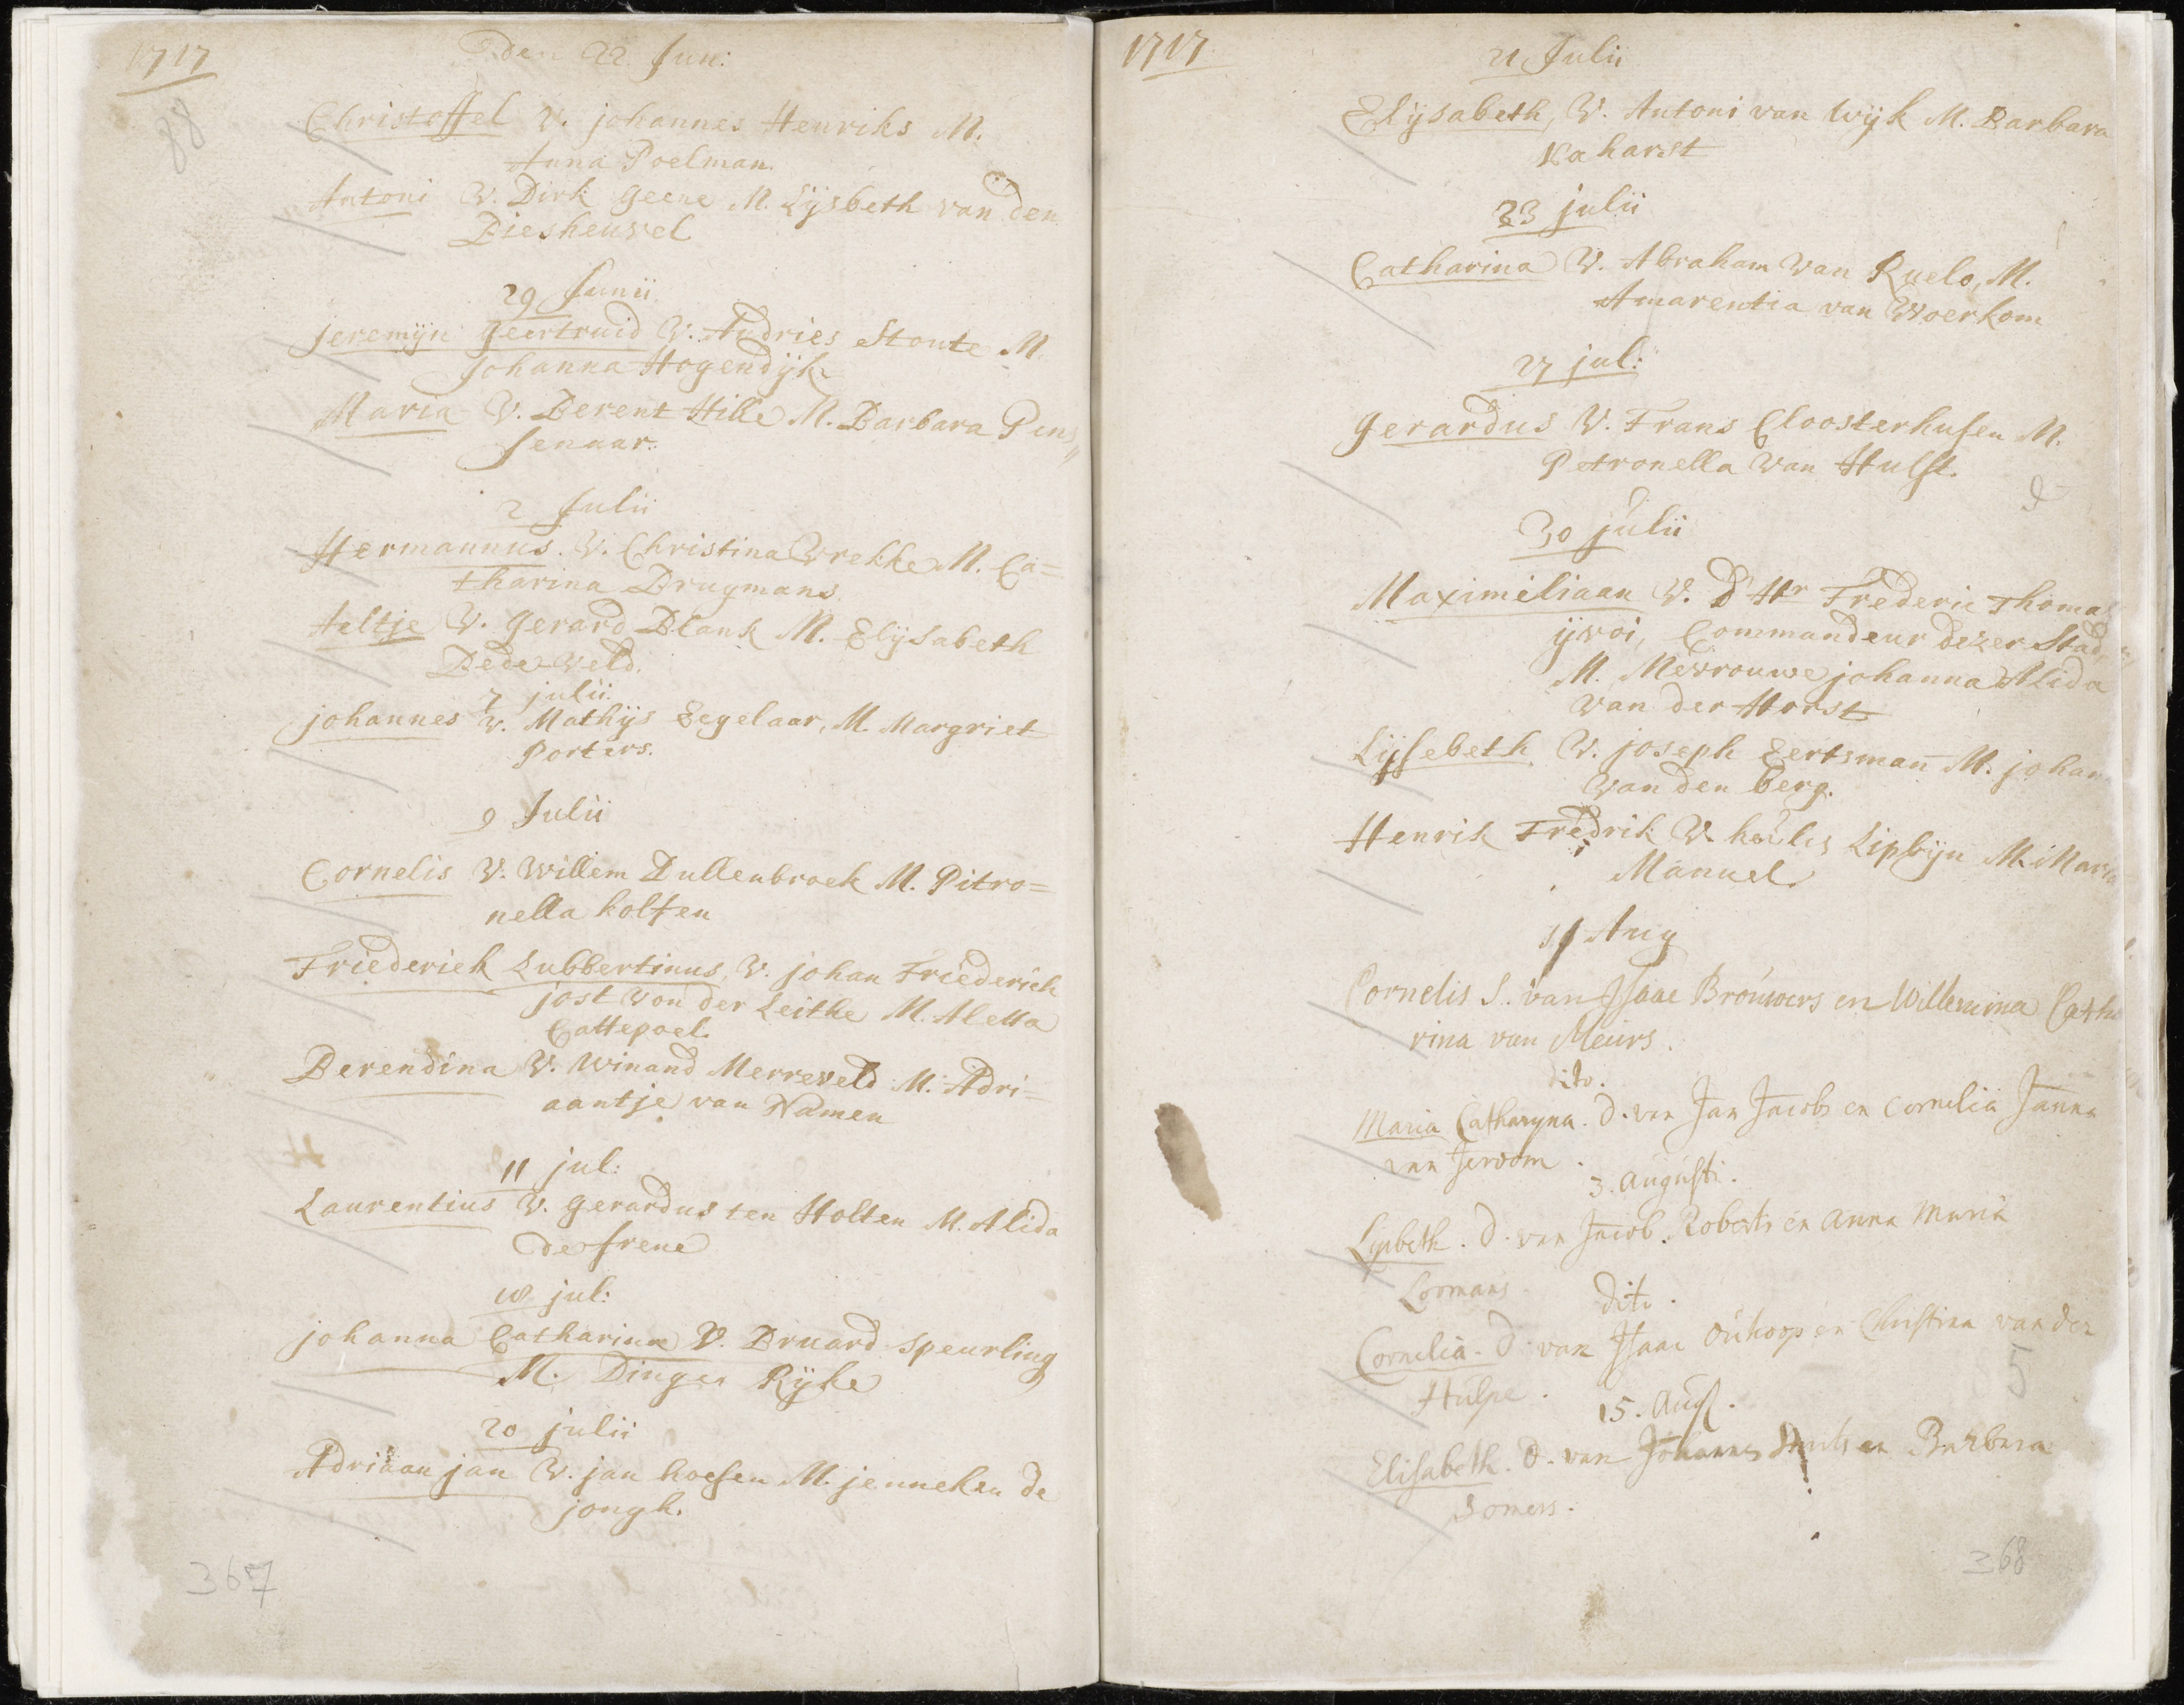 1717
den 22 Jun:
88
Christoffel V. johannes Henriks M.
Anna Poelman.
Antoni V. Dirk Geene M. Lijsbeth van den
Diesheuvel
29 Junii
jeremijn geertruid V. Andries Stoute M
Johanna Hogendijk
Maria V. Berent Hille M. Barbara Pens„
senaar.
2 Julii
Hermannus. V. Christina Vrekke M. Ca=
tharina Brugmans
Aeltje V. Gerard Blank M. Elijsabeth
Bedeweld.
7 julii
johannes V. Mathijs Eegelaar, M. Margriet
Porters.
9 Julii
Cornelis V. Willem Dullenbroek M. Pitro=
nella holten
Friederick Lubbertinus V. johan Friederich
jost von der Leithe M. Aletta
Cattepoel.
Berendina V. Winand Merreveld M. Adri=
aantje van Namen
11 jul:
Laurentius V. gerardus ten Holten M. Alida
de frene
18 jul:
johanna Catharina V. Bruard Speurling
M. Dinges Rijke
20 julii
Adriaan jan V. jan hoesen M. jenneken de
jongh.
367
1717
21 Julii
Elijsabeth, V. Antoni van Wijk M. Barbara
Kaharst
23 julii
Catharina V. Abraham van Ruelo, M.
Amarentia van Woerkom
27 jul:
Gerardus V. Frans Cloosterhusen M.
Petronella van Hulst.
30 julii
Maximiliaan V. D Hr Frederic Thomas
ijvoi, Commandeur dezer Stad,
M. Mevrouwe johanna Alida
van der Horst
Lijsebeth V. joseph Eertsman M. johan
van den berg.
Henrik Fredrik V. Lipsijn M. Maria
Manuel.
11 Aug
Cornelis S. van Isaac Brouwers en Willemina Catha
rina van Meurs.
dito.
Maria Catharyna. D. van Jan Jacobs en Cornelia Janna
van
3. Augusti.
Lijsbeth. D. van Jacob Roberts en Anna Maria
Loomans.
dito.
Cornelia. D. van Isaac Oukoop en Christina van der
Hulpe.
15. Aug.
Elisabeth. D. van Johannes en Barbara
Somers.
368